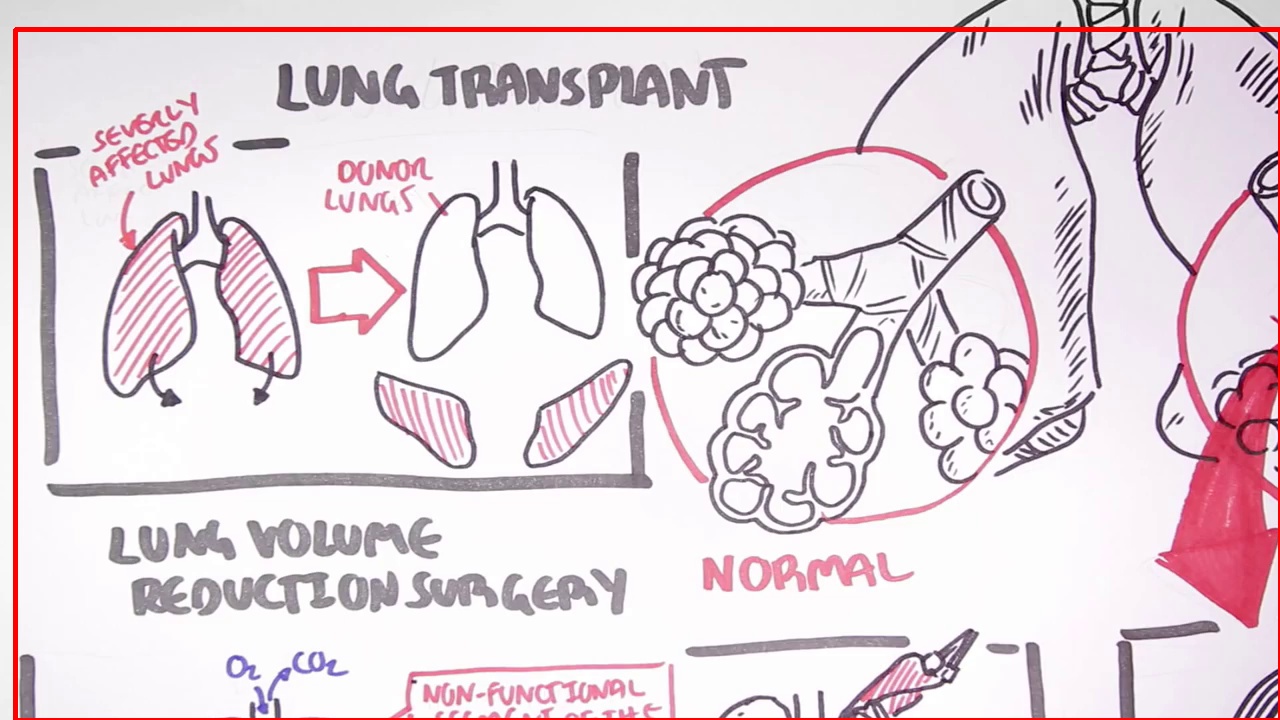 LUNG TRANSPLANT
SEVERLY
AFFECTED
LUNGS
DONOR
LUNGS
NORMAL
LUNG VOLUME
REDUCTION SURGERY
O2
CO2
NON-FUNCTIONAL